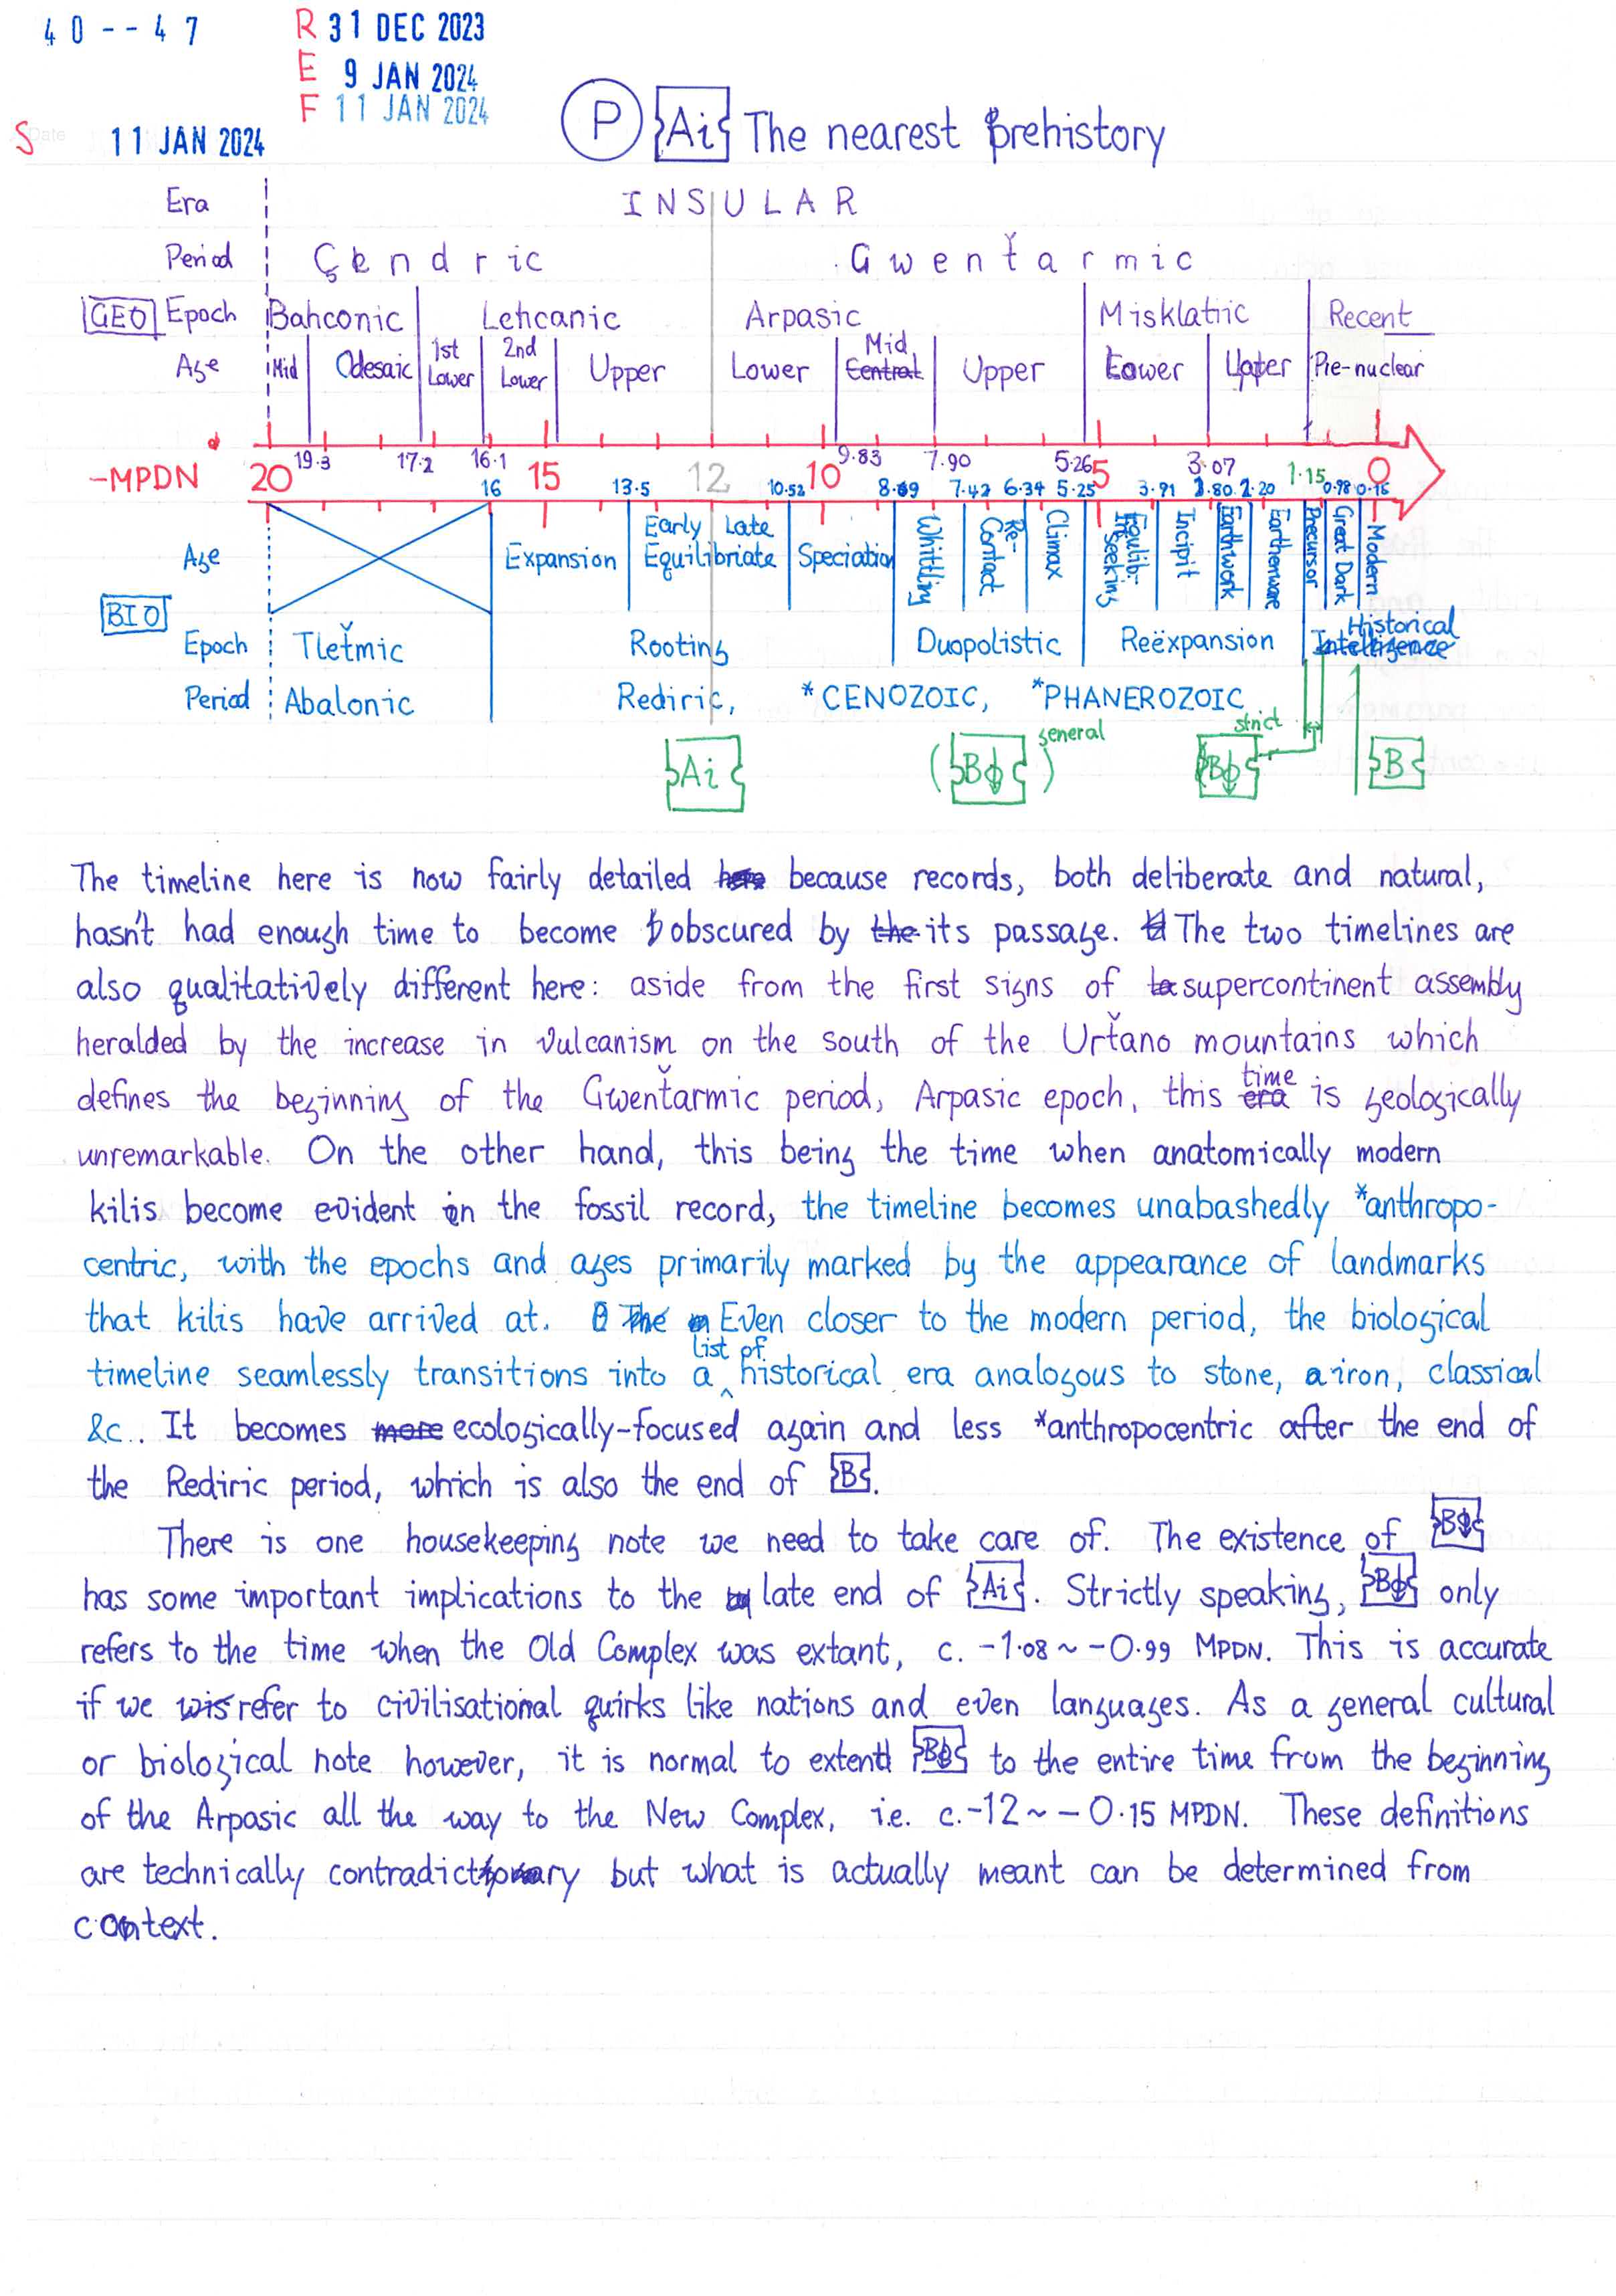 40--47
R 31 DEC 2023
E 9 JAN 2024
F 11 JAN 2024
S Date 11 JAN 2024
P Ai The nearest prehistory
Era INSULAR
Period Çendric Gwenťarmic
GEO Epoch Bahconic Lehcanic Arpasic Misklatric Recent
Age Mid Odesaic 1st Lower 2nd Lower Upper Lower Mid Central Upper Lower Upper Pre-nuclear
19.3 17.2 16.1 9.83 7.90 5.26 3.07
-MPDN 20 15 12 10 5 1.15 0
16 13.5 10.52 8.69 7.42 6.34 5.25 3.91 2.80 2.20 0.98 0.15
Age Expansion Early Equilibriate Late Speciation Whittling Re-Contact Climax Equilib. Seeking Incipit Earthwork Earthenware Precursor Great Dark Modern
BIO
Epoch Tleťmic Rooting Duopolistic Reëxpansion Historical Intelligence
Period Abalonic Rediric, *CENOZOIC, *PHANEROZOIC
Ai (B) general B strict B
The timeline here is now fairly detailed here because records, both deliberate and natural,
hasn't had enough time to become obscured by the its passage. The two timelines are
also qualitatively different here: aside from the first signs of supercontinent assembly
heralded by the increase in vulcanism on the south of the Urťano mountains which
defines the beginning of the Gwenťarmic period, Arpasic epoch, this era time is geologically
unremarkable. On the other hand, this being the time when anatomically modern
kilis become evident in the fossil record, the timeline becomes unabashedly *anthropo-
centric, with the epochs and ages primarily marked by the appearance of landmarks
that kilis have arrived at. The Even closer to the modern period, the biological
timeline seamlessly transitions into a list of historical era analogous to stone, iron, classical
&c. It becomes more ecologically-focused again and less *anthropocentric after the end of
the Rediric period, which is also the end of B.
There is one housekeeping note we need to take care of. The existence of B
has some important implications to the late end of Ai. Strictly speaking, B only
refers to the time when the Old Complex was extant, c. -1.08 ~ -0.99 MPDN. This is accurate
if we wis refer to civilisational quirks like nations and even languages. As a general cultural
or biological note however, it is normal to extend B to the entire time from the beginning
of the Arpasic all the way to the New Complex, i.e. c.-12 ~ -0.15 MPDN. These definitions
are technically contradictory but what is actually meant can be determined from
context.